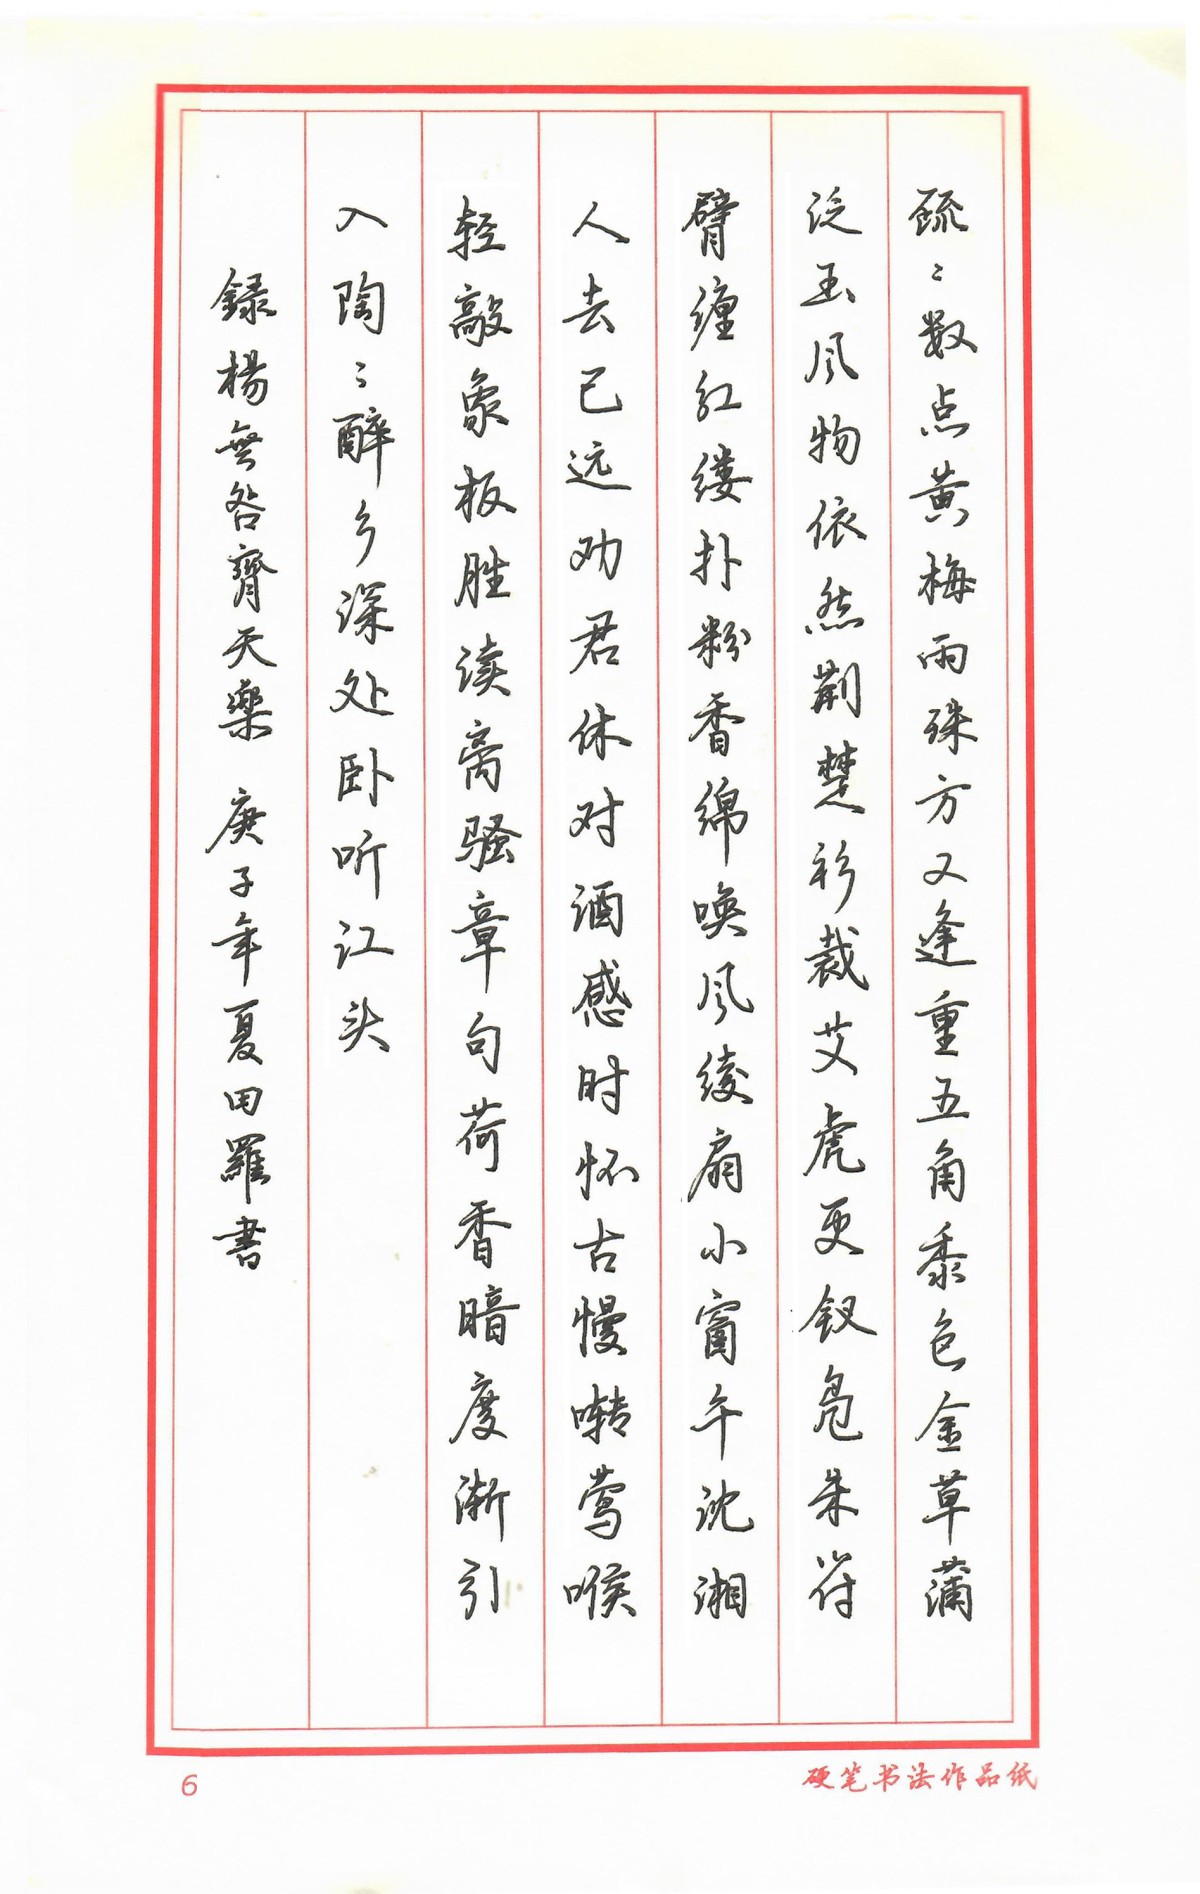 疏〻数点黄梅雨殊方又逢重五角黍包金草蒲
泛玉风物依然荆楚衫裁艾虎更钗凫朱符
臂缠红缕扑粉香绵唤风绫扇小窗午沈湘
人去已远劝君休对酒感时怀古慢啭莺喉
轻敲象板胜读离骚章句荷香暗度渐引
入陶〻醉乡深处卧听江头
録楊無咎齊天樂 庚子年夏田羅書
6
硬笔书法作品纸